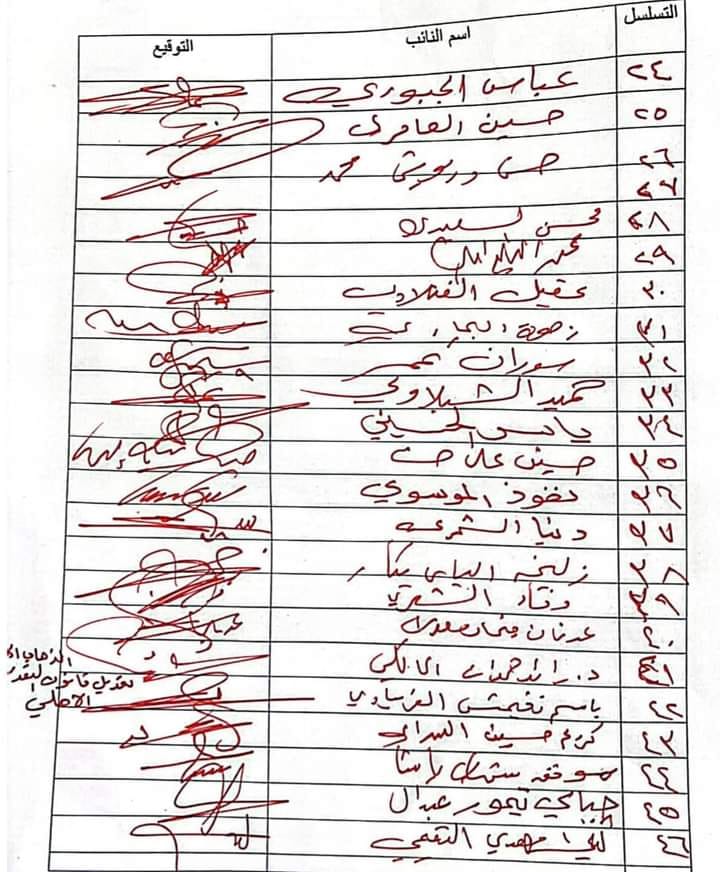 التسلسل اسم النائب التوقيع
٢٤ عباس الجبوري
٢٥ حسين العامري
٢٦ حسن درويش محمد
٢٧
٢٨ محسن السعيدي
٢٩
٣٠ عقيل الفتلاوي
٣١ زهرة البجاري
٣٢ سوران عمر
٣٣ حميد الشبلاوي
٣٤ ياسر الحسيني
٣٥ حسين علي
٣٦ نفوذ الموسوي
٣٧ دنيا الشمري
٣٨ زليخة الياس بكار
٣٩ الشمري
٤٠ عدنان
٤١ د. رائد حمدان المالكي
٤٢ باسم نغيمش الغريباوي
٤٣ كريم حسين السراي
٤٤
٤٥ جياي تيمور عبدال
٤٦ مهدي التميمي
الذهاب الى
تعديل قانون
الاصلي